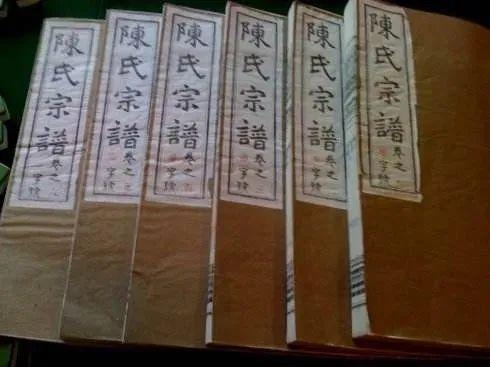 陳氏宗譜
卷之
字號
陳氏宗譜
卷之
字號
陳氏宗譜
卷之
字號
陳氏宗譜
卷之
字號
陳氏宗譜
卷之
字號
陳氏宗譜
卷之
字號